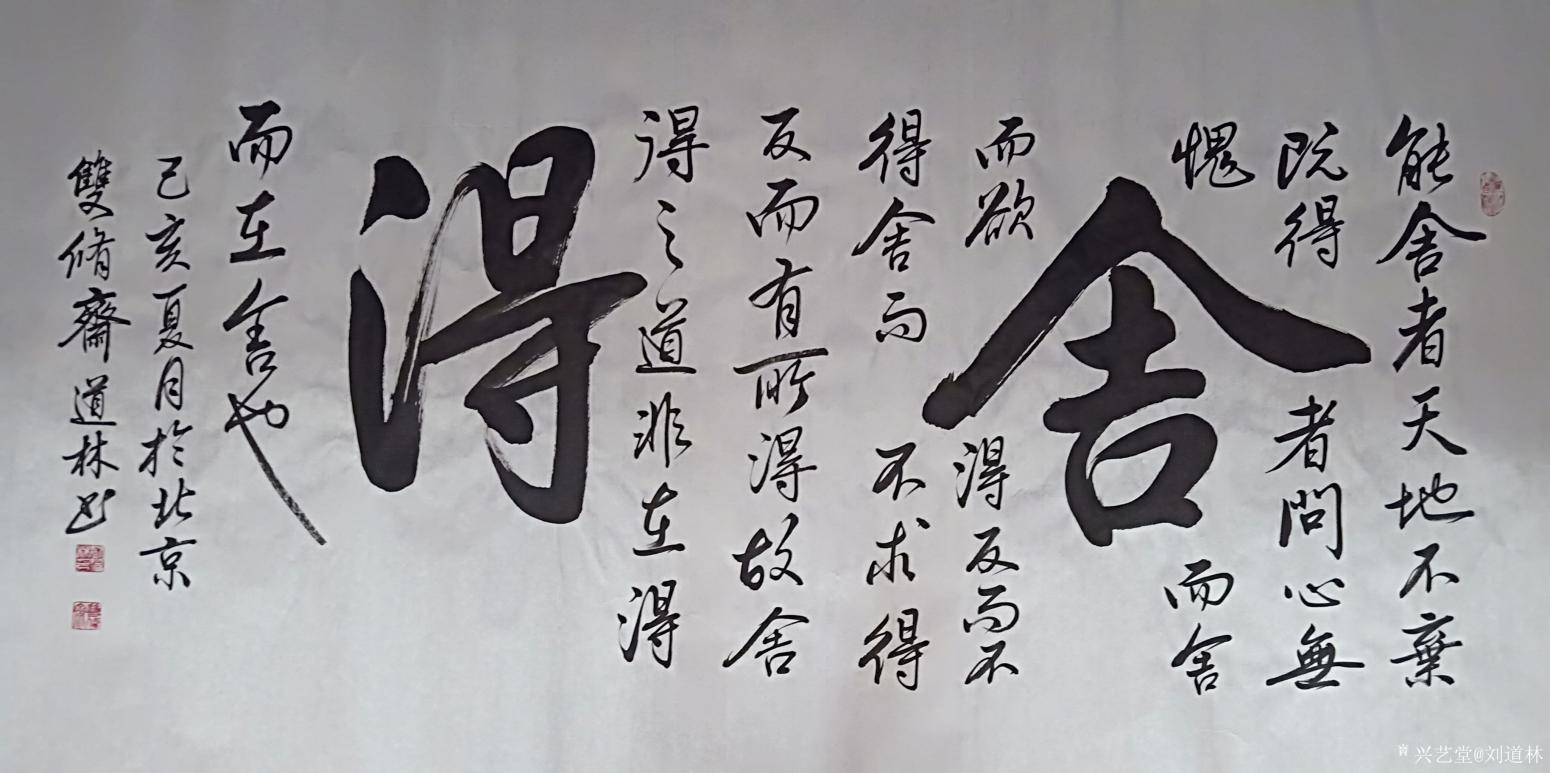 能舍者天地不棄
既得者問心無
愧而舍
舍
而欲得反而不
得舍而不求得
反而有所得故舍
得之道非在得
得
而在舍也
己亥夏月於北京
雙脩齋道林书
兴艺堂@刘道林